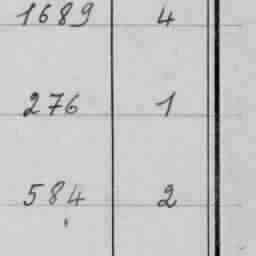 1689 4
276 1
584 2